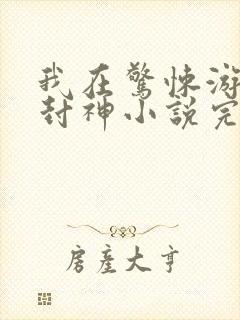 我在驚悚游
封神小說完
房產大亨